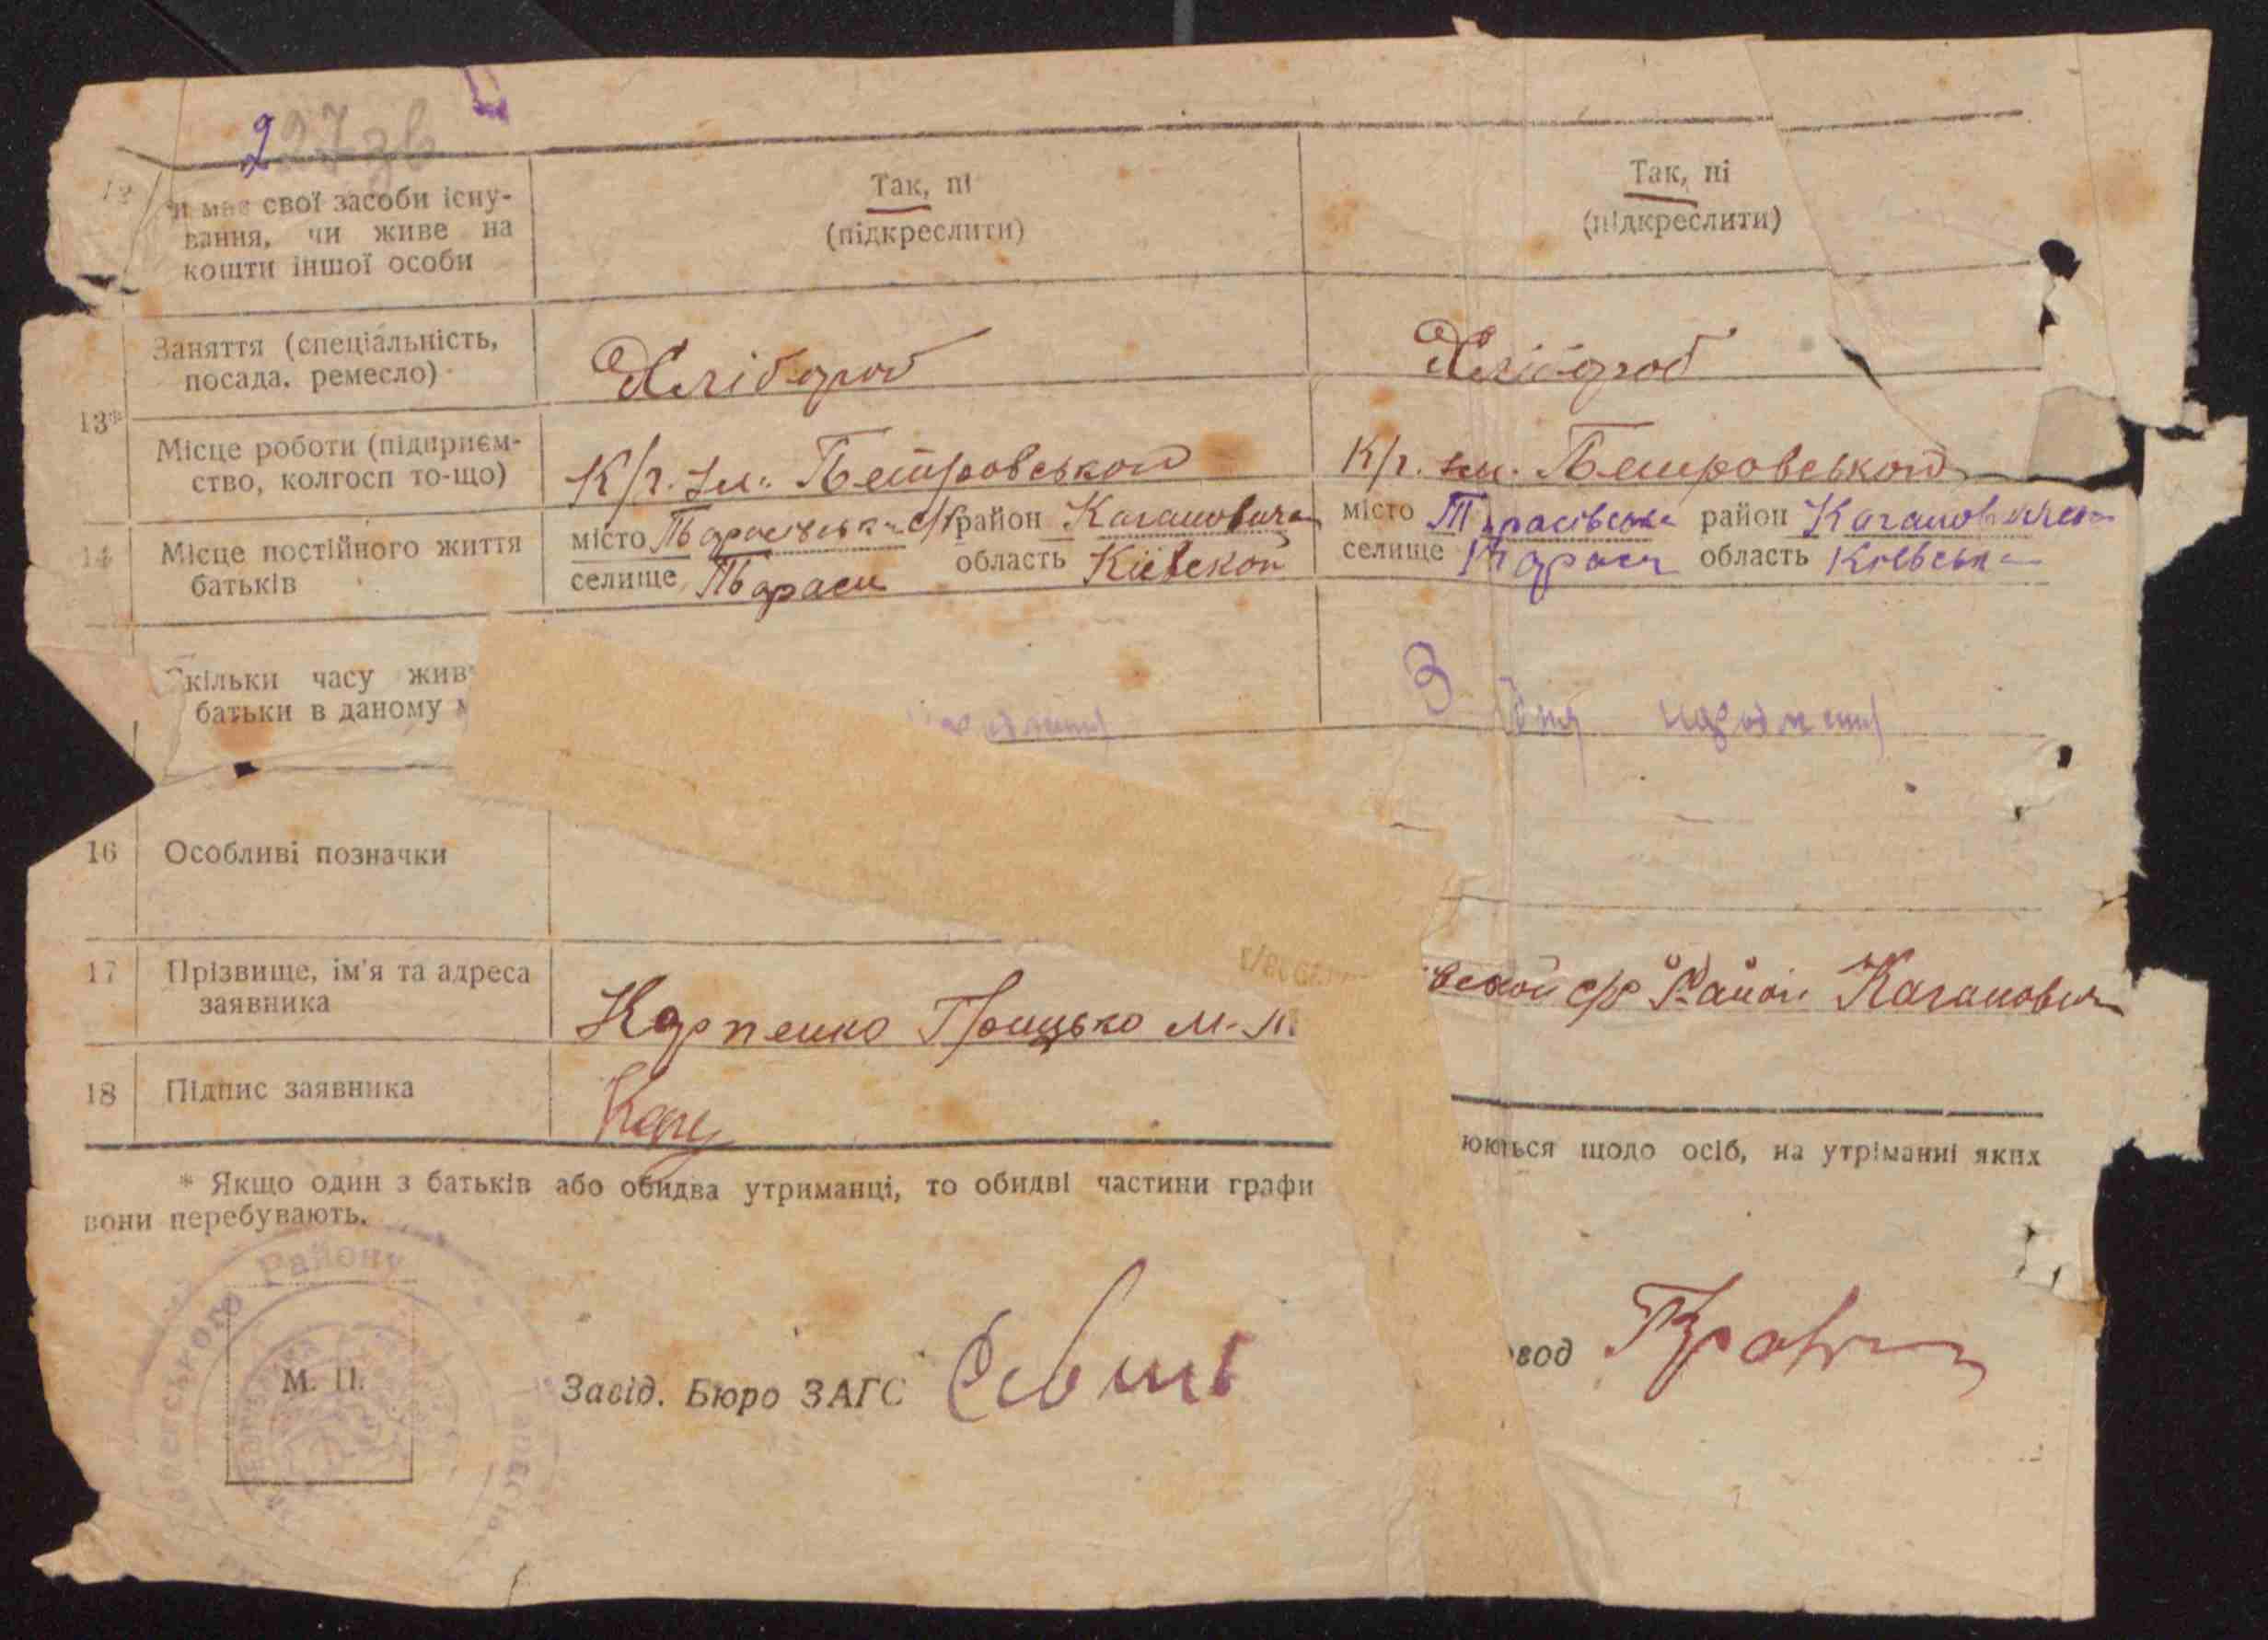 227зв
12
Чи має свої засоби існу-
вання, чи живе на
кошти іншої особи
Так, ні
(підкреслити)
Так, ні
(підкреслити)
13*
Заняття (спеціальність,
посада, ремесло)
Хлібороб
Хлібороб
Місце роботи (підприєм-
ство, колгосп то-що)
К/г. ім. Петровського
К/г. ім. Петровського
14
Місце постійного життя
батьків
місто Тарасівська с/р район Кагановича
селище Тараси область Київской
місто Тарасівська район Кагановича
селище Тараси область Київська
Скільки часу жив
батьки в даному м
З дня
16
Особливі позначки
17
Прізвище, ім'я та адреса
заявника
Карпенко Грицько М.
вской с/р Район Каганович
18
Підпис заявника
* Якщо один з батьків або обидва утриманці, то обидві частини графи
юються щодо осіб, на утріманні яких
вони перебувають.
Району
М. П.
Завід. Бюро ЗАГС
вод